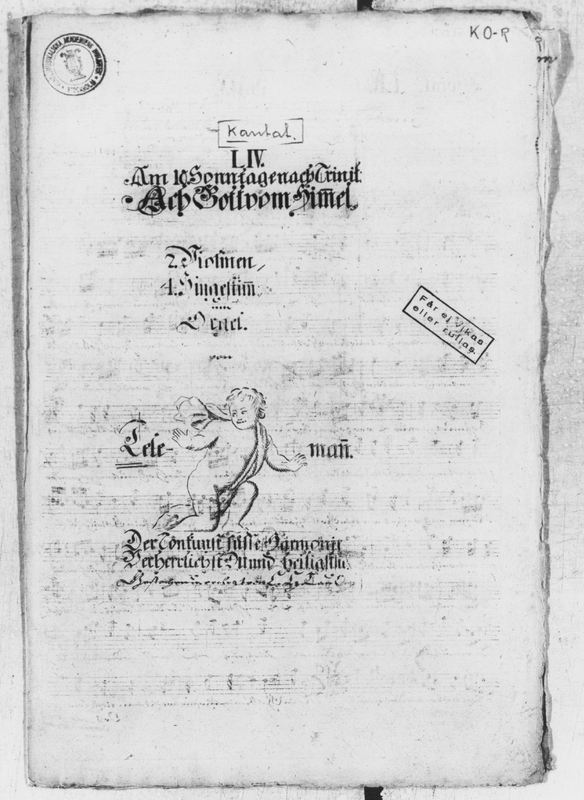 KO-R
Kantat.
LIV.
Am 10 Sonntage nach Trinit.
Ach Gott vom Him̅el.
2. Violinen,
4. Singestim̅.
Orgel.
von
Tele- man̅.
Der Tonkunst süsse Harmonie
Verherrlichst Du und heiligst sie.
Får ej vikas
eller rullas.